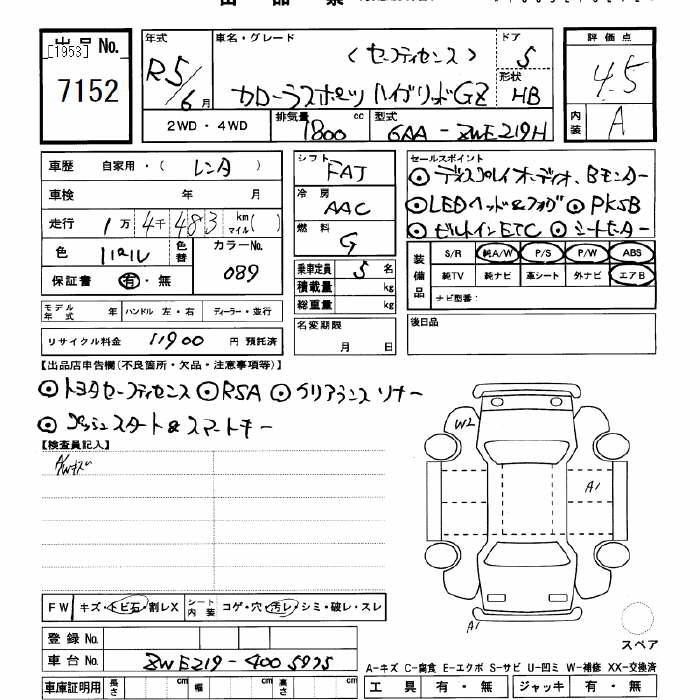 出品No. [1953] 7152
年式 R5/6月
車名・グレード (セーフティセンス) カローラスポーツ ハイブリッドGZ
ドア 5
形状 HB
評価点 4.5
内装 A
2WD・4WD
排気量 1800 cc
型式 6AA-ZWE219H
車歴 自家用・(レンタ)
車検 年 月
走行 1万4千483 km マイル( )
色 パール 色替 カラーNo. 089
保証書 有・無
シフト FAT
冷房 AAC
燃料 G
乗車定員 5 名
積載量 kg
総重量 kg
セールスポイント
◎ディスプレイオーディオ、Bモニター
◎LEDヘッド&フォグ ◎PKSB
◎ビルトインETC ◎シートヒーター
装備品 S/R 純A/W P/S P/W ABS
純TV 純ナビ 革シート 外ナビ エアB
ナビ型番:
モデル年式 年 ハンドル 左・右 ディーラー・並行
名変期限 月 日
後日品
リサイクル料金 11900 円 預託済
【出品店申告欄(不良箇所・欠品・注意事項等)】
◎トヨタセーフティセンス ◎RSA ◎クリアランスソナー
◎プッシュスタート&スマートキー
【検査員記入】
A/Wキズ
W2
A1
A1
スペア
FW キズ・トビ石・割レX シート内装 コゲ・穴・汚レ・シミ・破レ・スレ
登録No.
車台No. ZWE219-4005975
A-キズ C-腐食 E-エクボ S-サビ U-凹ミ W-補修 XX-交換済
車庫証明用 長さ cm 幅 cm 高さ cm
工具 有・無 ジャッキ 有・無